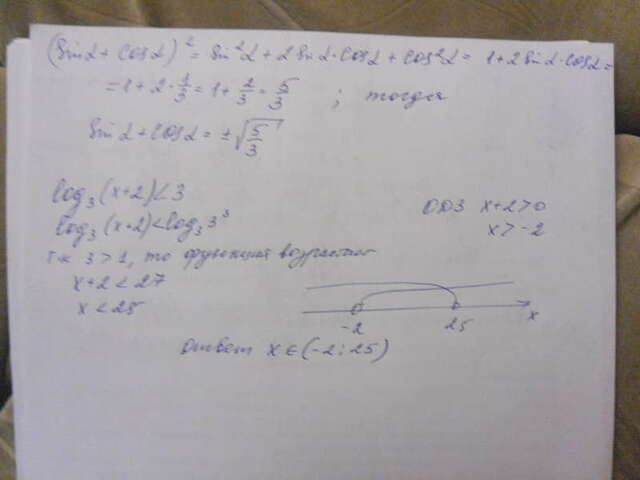 (sin α + cos α)² = sin²α + 2 sin α · cos α + cos²α = 1 + 2 sin α · cos α =
= 1 + 2 · 1/3 = 1 + 2/3 = 5/3 ; тогда
sin α + cos α = ±√(5/3)
log₃(x+2) < 3
log₃(x+2) < log₃3³
т.к 3 > 1, то функция возрастает
x+2 < 27
x < 25
ОДЗ x+2 > 0
x > -2
-2 25 x
ответ x ∈ (-2; 25)